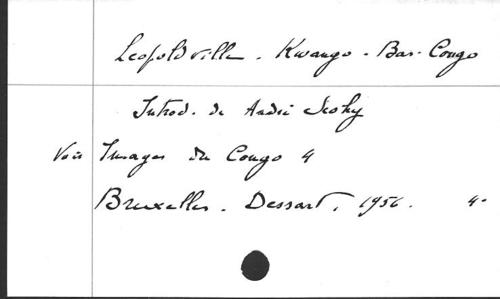 Leopoldville - Kwango - Bas-Congo
Introd. de André Scohy
Voir Images du Congo 4
Bruxelles. Dessart, 1956. 4°